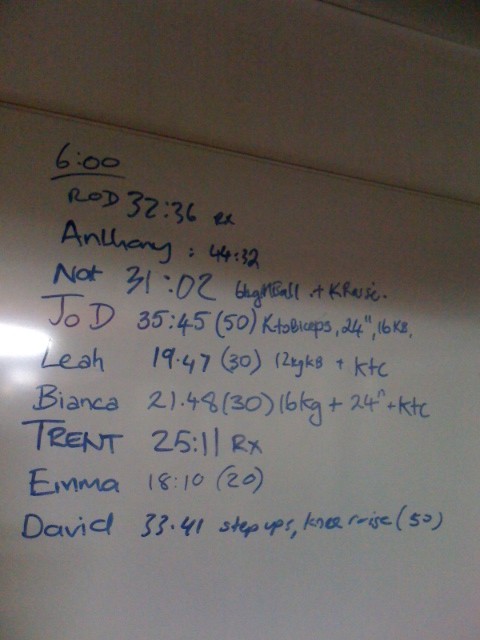 6:00
ROD 32:36 rx
Anthony : 44:32
Nat 31:02 6kgMBall + KRaise.
JoD 35:45 (50) KtoBiceps, 24", 16KB.
Leah 19.47 (30) 12kgKB + ktc
Bianca 21.48 (30) 16kg + 24" + ktc
TRENT 25:11 Rx
Emma 18:10 (20)
David 33.41 step ups, knee raise (50)